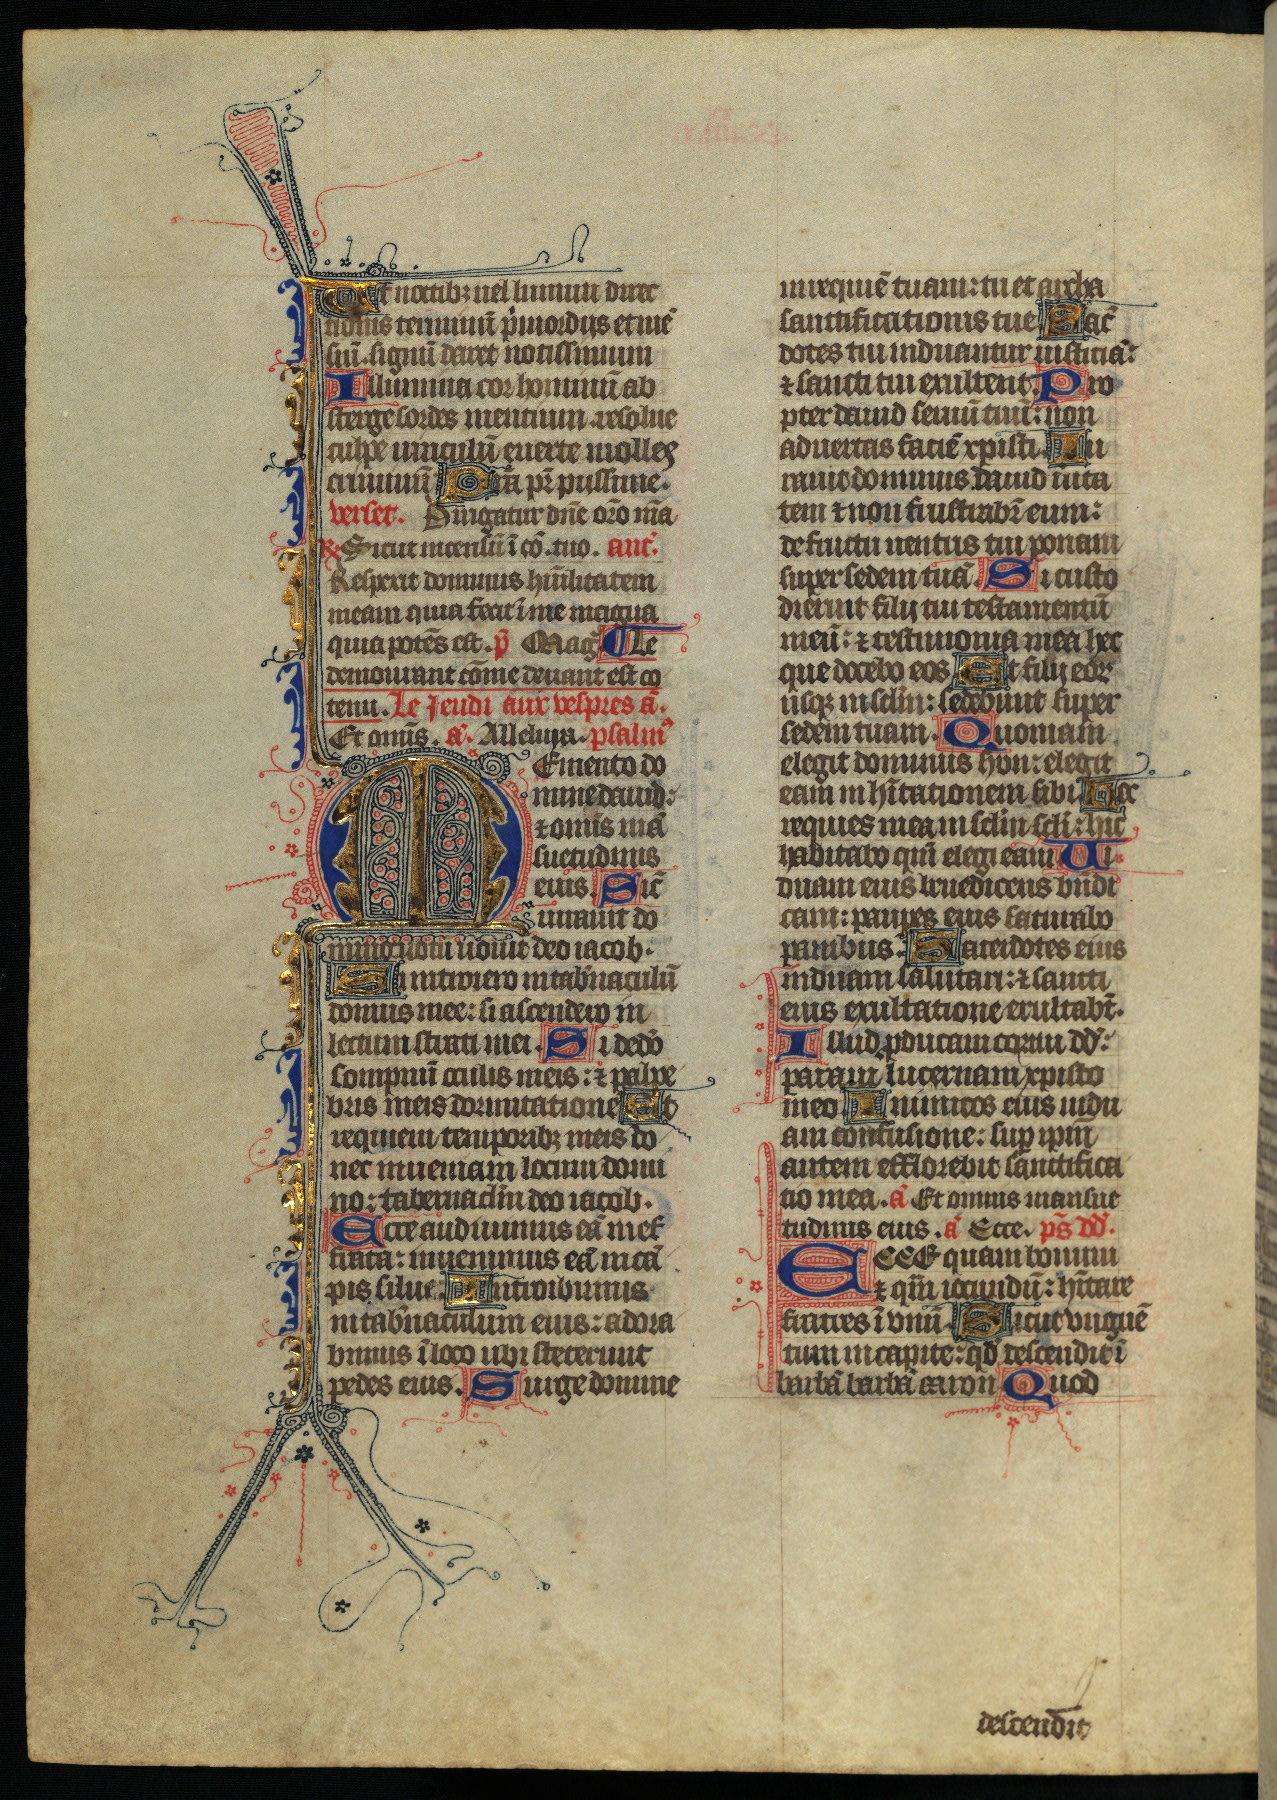 Ut noctibꝫ uel lumini direc
tionis terminũ p̃mordijs et mẽ
siũ. signũ daret notissimum
Illumina cor hominũ ab
sterge sordes mentium . resolue
culpe uinculũ euerte molles
criminũ Pr̃a pr̃ pijssime.
verset. Dirigatur dñe or̃o m̃a
℟ Sicut incensũ ĩ cõ. tuo. anc̃.
Respexit dominus hũilitatem
meam quia fecit ĩ me magna
quia potẽs est . p̃ Mag̃. Le
demourant cõme deuant est cõ
tenu . Le jeudi aux vespres ã.
Et omĩs . ã. Alleluya . psalmꝰ
Memento do
mine dauid:
⁊ omĩs mã
suetudinis
eius . Sic̃
iurauit do
mino uotũ uouit deo iacob.
Si introiero in tab̃naculũ
domus mee: si ascendero in
lectum strati mei . Si dedõ
sompnũ oculis meis: ⁊ palpe
bris meis dormitationẽ Et
requiem temporibꝫ meis do
nec inueniam locum domi
no: tabernacl̃m deo iacob.
Ecce audiuimus eã in ef
frata: inuenimus eã in cã
pis silue . Introibimus
in tab̃naculum eius: adora
bimus ĩ loco ubi steterunt
pedes eius. Surge domine
in requiẽ tuam: tu et archa
sanctificationis tue Sac̃
dotes tui induantur iusticiã:
⁊ sancti tui exultent. Pro
pter dauid seruũ tuũ: non
aduertas faciẽ xpisti. Iu
rauit dominus dauid uita
tem ⁊ non frustrabr̃ eum:
de fructu uentris tui ponam
super sedem tuã. Si custo
dierint filij tui testamentũ
meũ: ⁊ testimonia mea hec
que docebo eos Et filij eoꝝ
usqꝫ in scl̃m: sedebunt super
sedem tuam . Quoniam
elegit dominus syon: elegit
eam in hĩtationem sibi Hec
requies mea in scl̃m scl̃i: hic
habitabo qm̃ elegi eam Ui
duam eius benedicens bñdi
cam: paupes eius saturabo
panibus. Sacerdotes eius
induam salutari: ⁊ sancti
eius exultatione exultabt̃.
Illud ꝓducam cornu dd̃:
paraui lucernam xpisto
meo Inimicos eius indu
am confusione: sup ipm̃
autem efflorebit sanctifica
tio mea . ã Et omnis mansue
tudinis eius . ã Ecce . ps̃ dd̃.
ECCE quam bonum
⁊ qm̃ iocundũ: hĩtare
fratres ĩ vnũ . Sicut vnguẽ
tum in capite: qd̃ descendit ĩ
barbã barbã aaron Quod
descendit